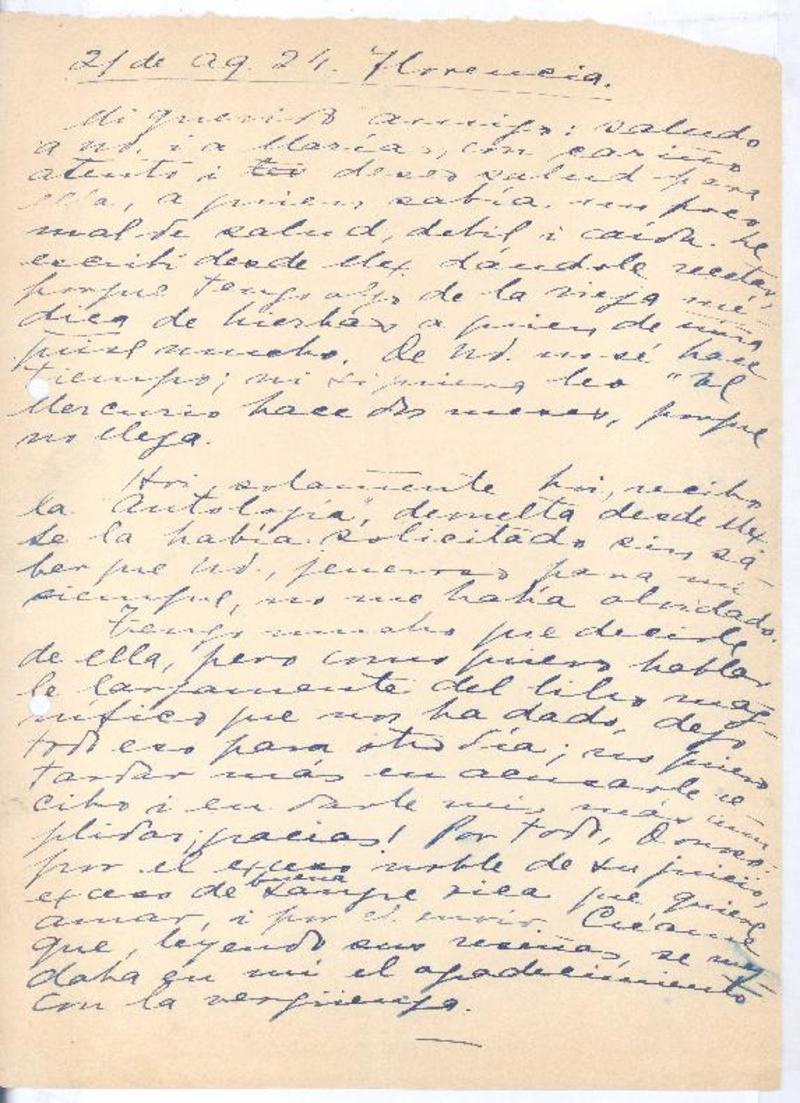 21 de Ag. 24. Florencia.
Mi querido amigo: saludo
a Ud. i a María, con cariño
atento i deseo salud para
ella, a quien sabía un poco
mal de salud, debil i caída. Le
escribí desde Mex dándole recetas,
porque tengo algo de la vieja mé-
dica de hierbas a quien de niña
quise mucho. De Ud. no sé hace
tiempo; ni siquiera leo "El
Mercurio hace dos meses, porque
no llega.
Hoi, solamente hoi, recibo
la "Antología", devuelta desde Mex
Se la había solicitado sin sa-
ber que Ud., jeneroso para mí
siempre, no me había olvidado.
Tengo mucho que decirle
de ella, pero como quiero hablar
le largamente del libro mag-
nífico que nos ha dado, dejo
todo eso para otro día; no quiero
tardar más en acusarle re-
cibo i en darle mis más cum
plidas ¡gracias! Por todo, Donoso:
por el exceso noble de su juicio,
exceso de buena sangre rica que quiere
amar, i por el envío. Créame
que, leyendo sus reseñas, se me
daba en mí el agradecimiento
con la vergüenza.